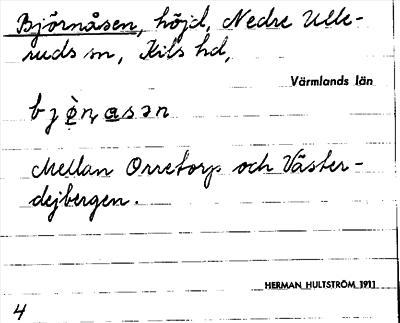 Björnåsen, höjd, Nedre Ulle-
ruds sn, Kils hd,
Värmlands län
Mellan Orretorp och Väster-
dejbergen.
HERMAN HULTSTRÖM 1911
4